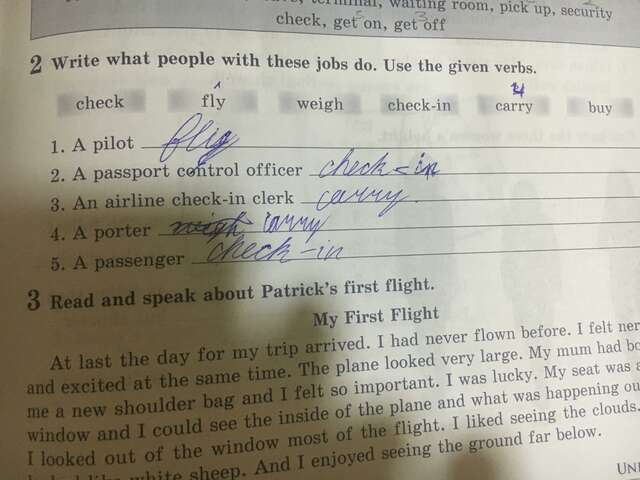 terminal, waiting room, pick up, security
check, get on, get off
2 Write what people with these jobs do. Use the given verbs.
check fly weigh check-in carry buy
1. A pilot
2. A passport control officer check-in
3. An airline check-in clerk carry.
4. A porter carry
5. A passenger check-in
3 Read and speak about Patrick's first flight.
My First Flight
At last the day for my trip arrived. I had never flown before. I felt
and excited at the same time. The plane looked very large. My mum had
me a new shoulder bag and I felt so important. I was lucky. My seat was
window and I could see the inside of the plane and what was happening
I looked out of the window most of the flight. I liked seeing the clouds.
like white sheep. And I enjoyed seeing the ground far below.